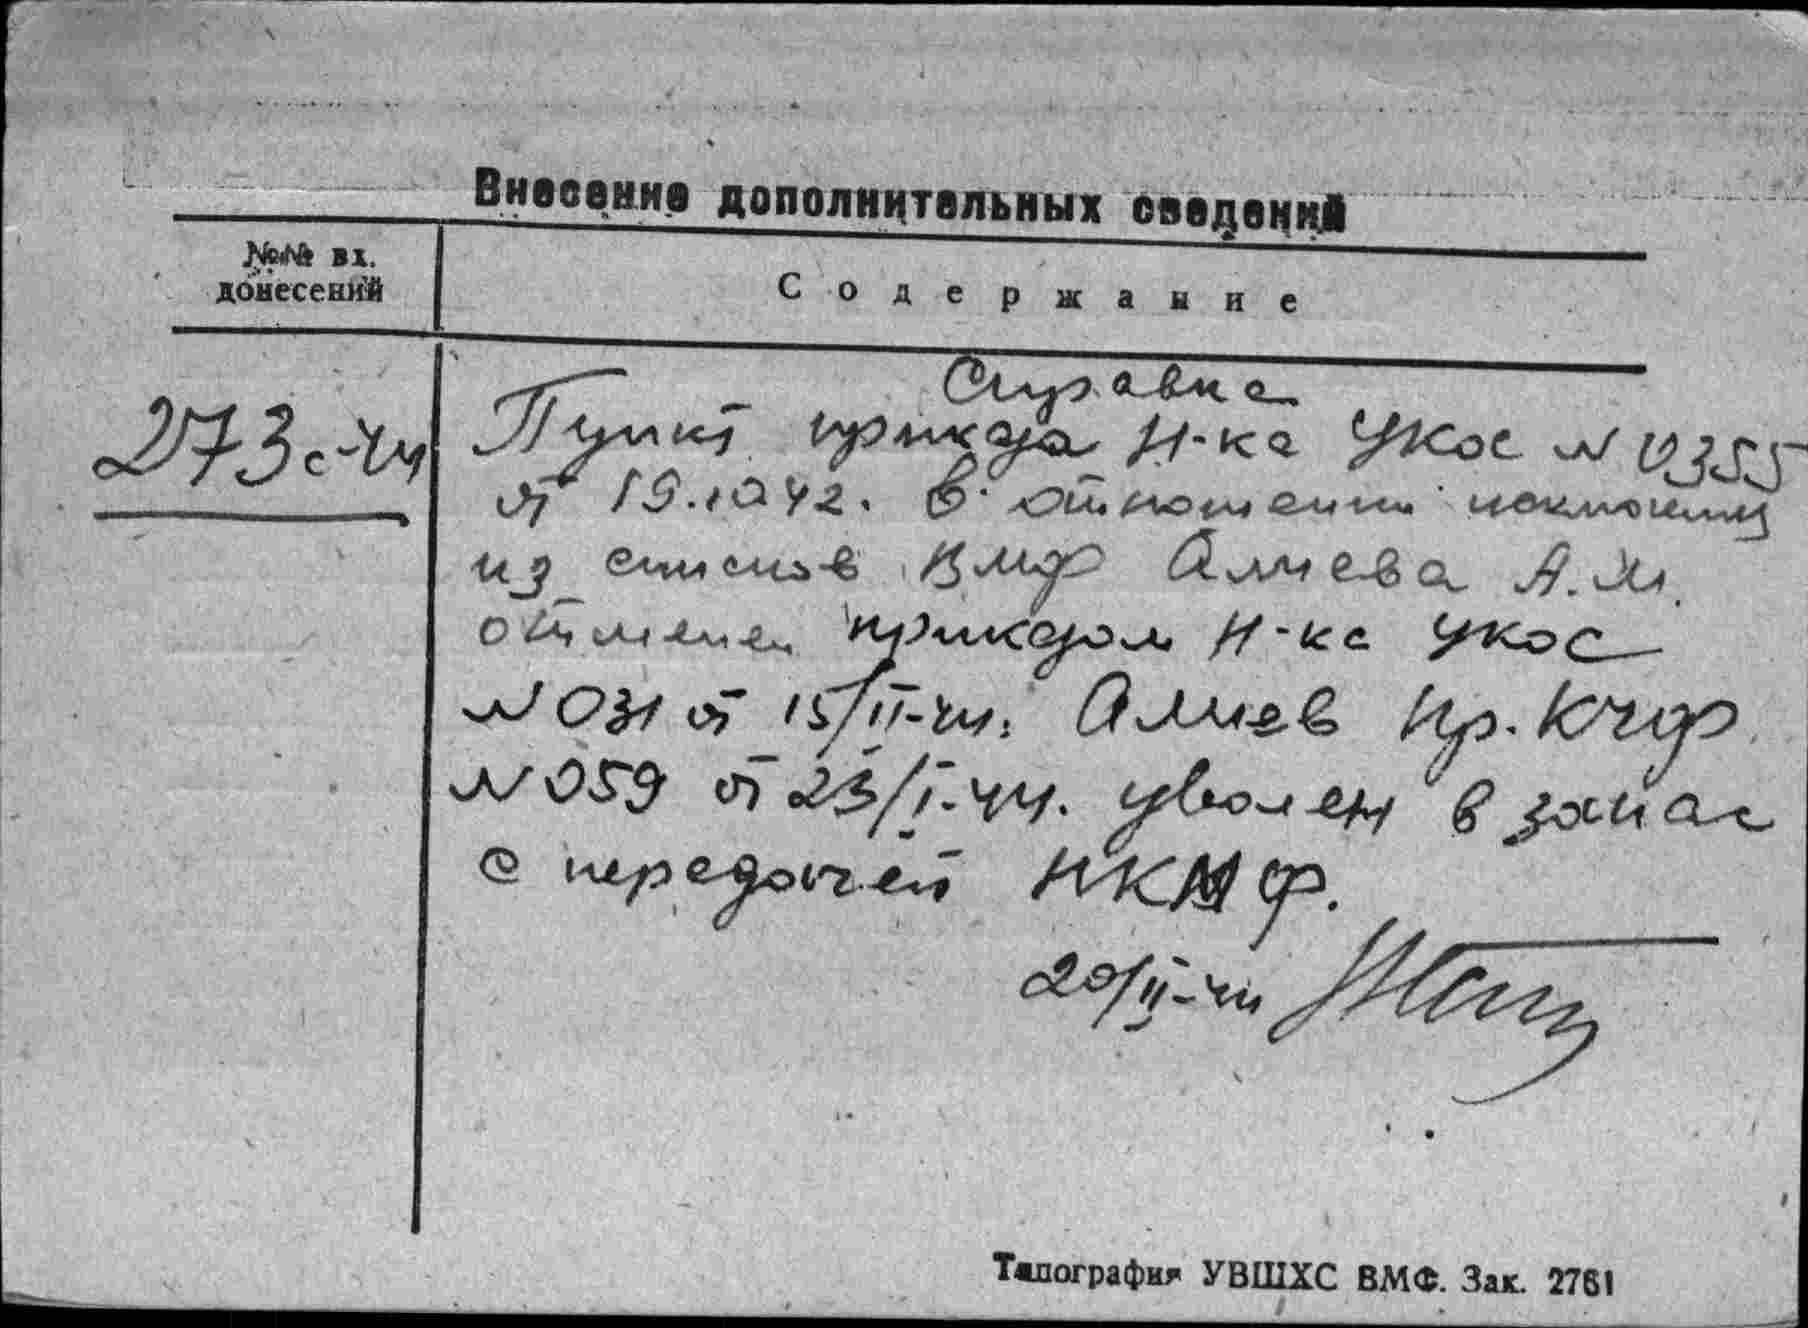 Внесение дополнительных сведений
№№ вх.
донесений
Содержание
273с-44
Справка
Пункт приказа Н-ка УКОС N 0355
от 19.10.42. в отношении исключения
из списков ВМФ Алиева А.М.
отменен приказом Н-ка УКОС
N 031 от 15/II-44. Алиев Пр. КЧФ
N 059 от 23/I-44. уволен в запас
с передачей НКМФ.
20/II-44
Типография УВШХС ВМФ. Зак. 2761